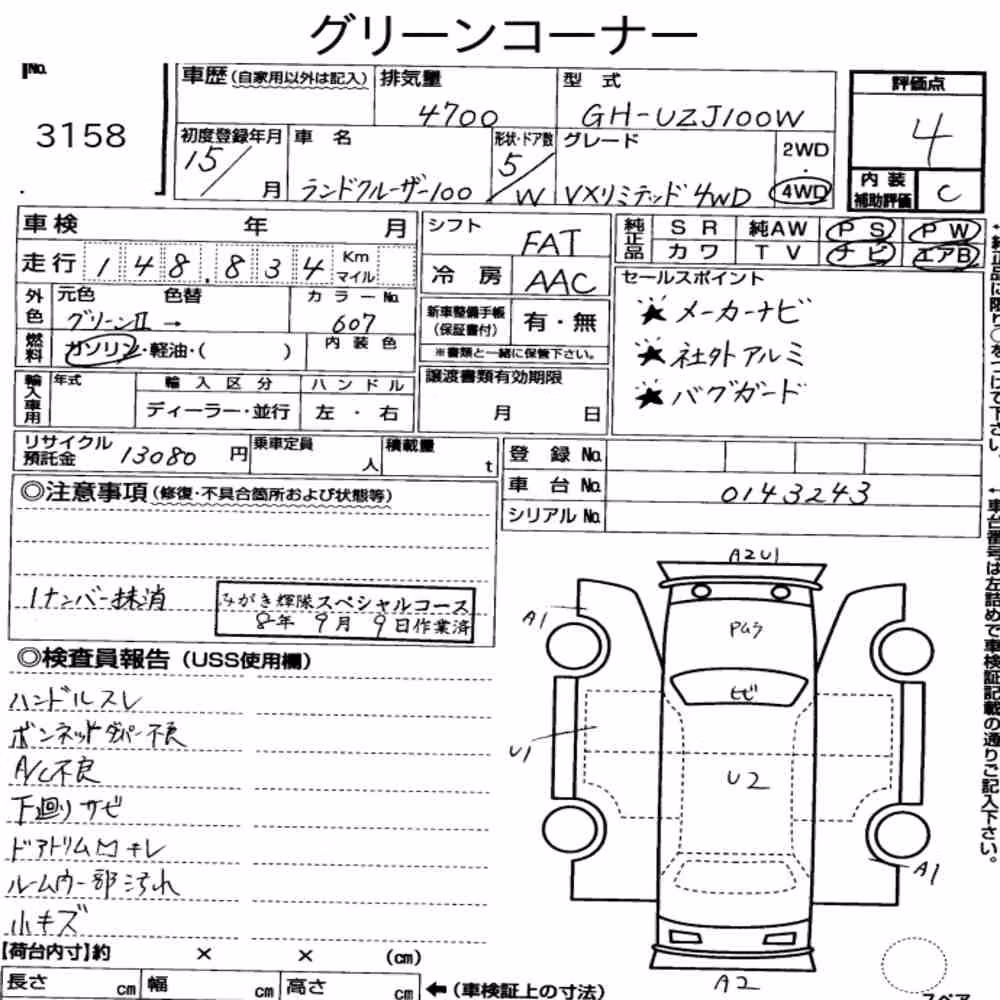 グリーンコーナー
No.
3158
車歴(自家用以外は記入) 排気量 型式
4700 GH-UZJ100W
評価点
4
内装補助評価 C
初度登録年月 車名 形状・ドア数 グレード
15/ 月 ランドクルーザー100 5/W VXリミテッド4WD
2WD
・
4WD
車検 年 月
走行 148.834 Km マイル
外色 元色 色替 カラーNo.
グリーンII → 607
燃料 ガソリン・軽油・( ) 内装色
輸入車用 年式 輸入区分 ハンドル
ディーラー・並行 左・右
シフト FAT
冷房 AAC
新車整備手帳(保証書付) 有・無
※書類と一緒に保管下さい。
譲渡書類有効期限
月 日
純正品 SR 純AW PS PW
カワ TV ナビ エアB
セールスポイント
★メーカーナビ
★社外アルミ
★バグガード
←純正品に限り○をつけて下さい。
リサイクル預託金 13080 円 乗車定員 人 積載量 t
登録No.
車台No. 0143243
シリアルNo.
←車台番号は左詰めで車検証記載の通りご記入下さい。
◎注意事項(修復・不具合箇所および状態等)
1ナンバー抹消
みがき輝隊スペシャルコース
8年9月9日作業済
◎検査員報告(USS使用欄)
ハンドルスレ
ボンネットダンパー不良
A/C不良
下廻りサビ
ドアトリム キレ
ルームウ一部汚れ
小キズ
A2U1
A1
Pムラ
ヒビ
U1
U2
A1
A2
スペア
【荷台内寸】約 × × (cm)
長さ cm 幅 cm 高さ cm ←(車検証上の寸法)